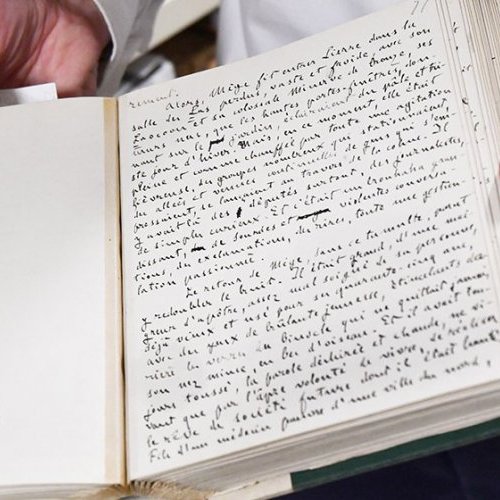 rement.
Alors, Mège fit entrer Pierre dans la
salle des Pas perdus, vaste et froide, avec son
Laocoon et sa colossale Minerve de bronze, ses
murs nus, que les hautes portes-fenêtres, don-
nant sur le jardin, éclairaient du pâle et tris-
te jour d'hiver. Mais, en ce moment, elle était
pleine et comme chauffée par toute une agitation
fiévreuse, des groupes nombreux qui stationnaient,
des allées et venues continuelles de gens qui s'em-
pressaient, se lançaient au travers de la cohue. Il
y avait là des députés surtout, des journalistes,
de simples curieux. Et c'était un brouhaha gran-
dissant, de sourdes et violentes conversa-
tions, des exclamations, des rires, toute une gesticu-
lation passionnée.
Le retour de Mège, dans ce tumulte, parut
y redoubler le bruit. Il était grand, d'une mai-
greur d'apôtre, assez mal soigné de sa personne,
déjà vieux et usé pour ses quarante-cinq ans,
avec des yeux de brûlante jeunesse, étincelants der-
rière les verres du binocle qui ne quittait jamais
son nez mince, en bec d'oiseau. Et il avait tou-
jours toussé, la parole déchirée et chaude, ne vi-
vant que par l'âpre volonté de vivre, de réaliser
le rêve de société future dont il était hanté.
Fils d'un médecin pauvre d'une ville du nord,